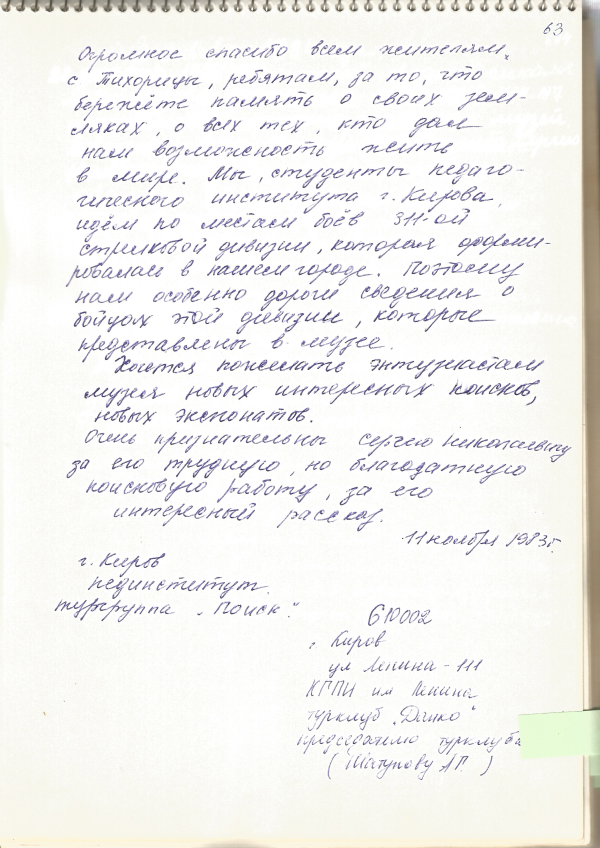 63
Огромное спасибо всем жителям
с Тихорицы, ребятам, за то, что
бережёте память о своих зем-
ляках, о всех тех, кто дал
нам возможность жить
в мире. Мы, студенты педаго-
гического института г. Кирова,
идём по местам боёв 311-ой
стрелковой дивизии, которая сформи-
ровалась в нашем городе. Поэтому
нам особенно дороги сведения о
бойцах этой дивизии, которые
представлены в музее.
Хочется пожелать энтузиастам
музея новых интересных поисков,
новых экспонатов.
Очень признательны Сергею Николаевичу
за его трудную, но благодатную
поисковую работу, за его
интересный рассказ.
11 ноября 1983 г.
г. Киров
пединститут
тургруппа „Поиск".
610002
г. Киров
ул Ленина - 111
КГПИ им Ленина
турклуб „Данко"
председателю турклуба
(Шатунову АП. )